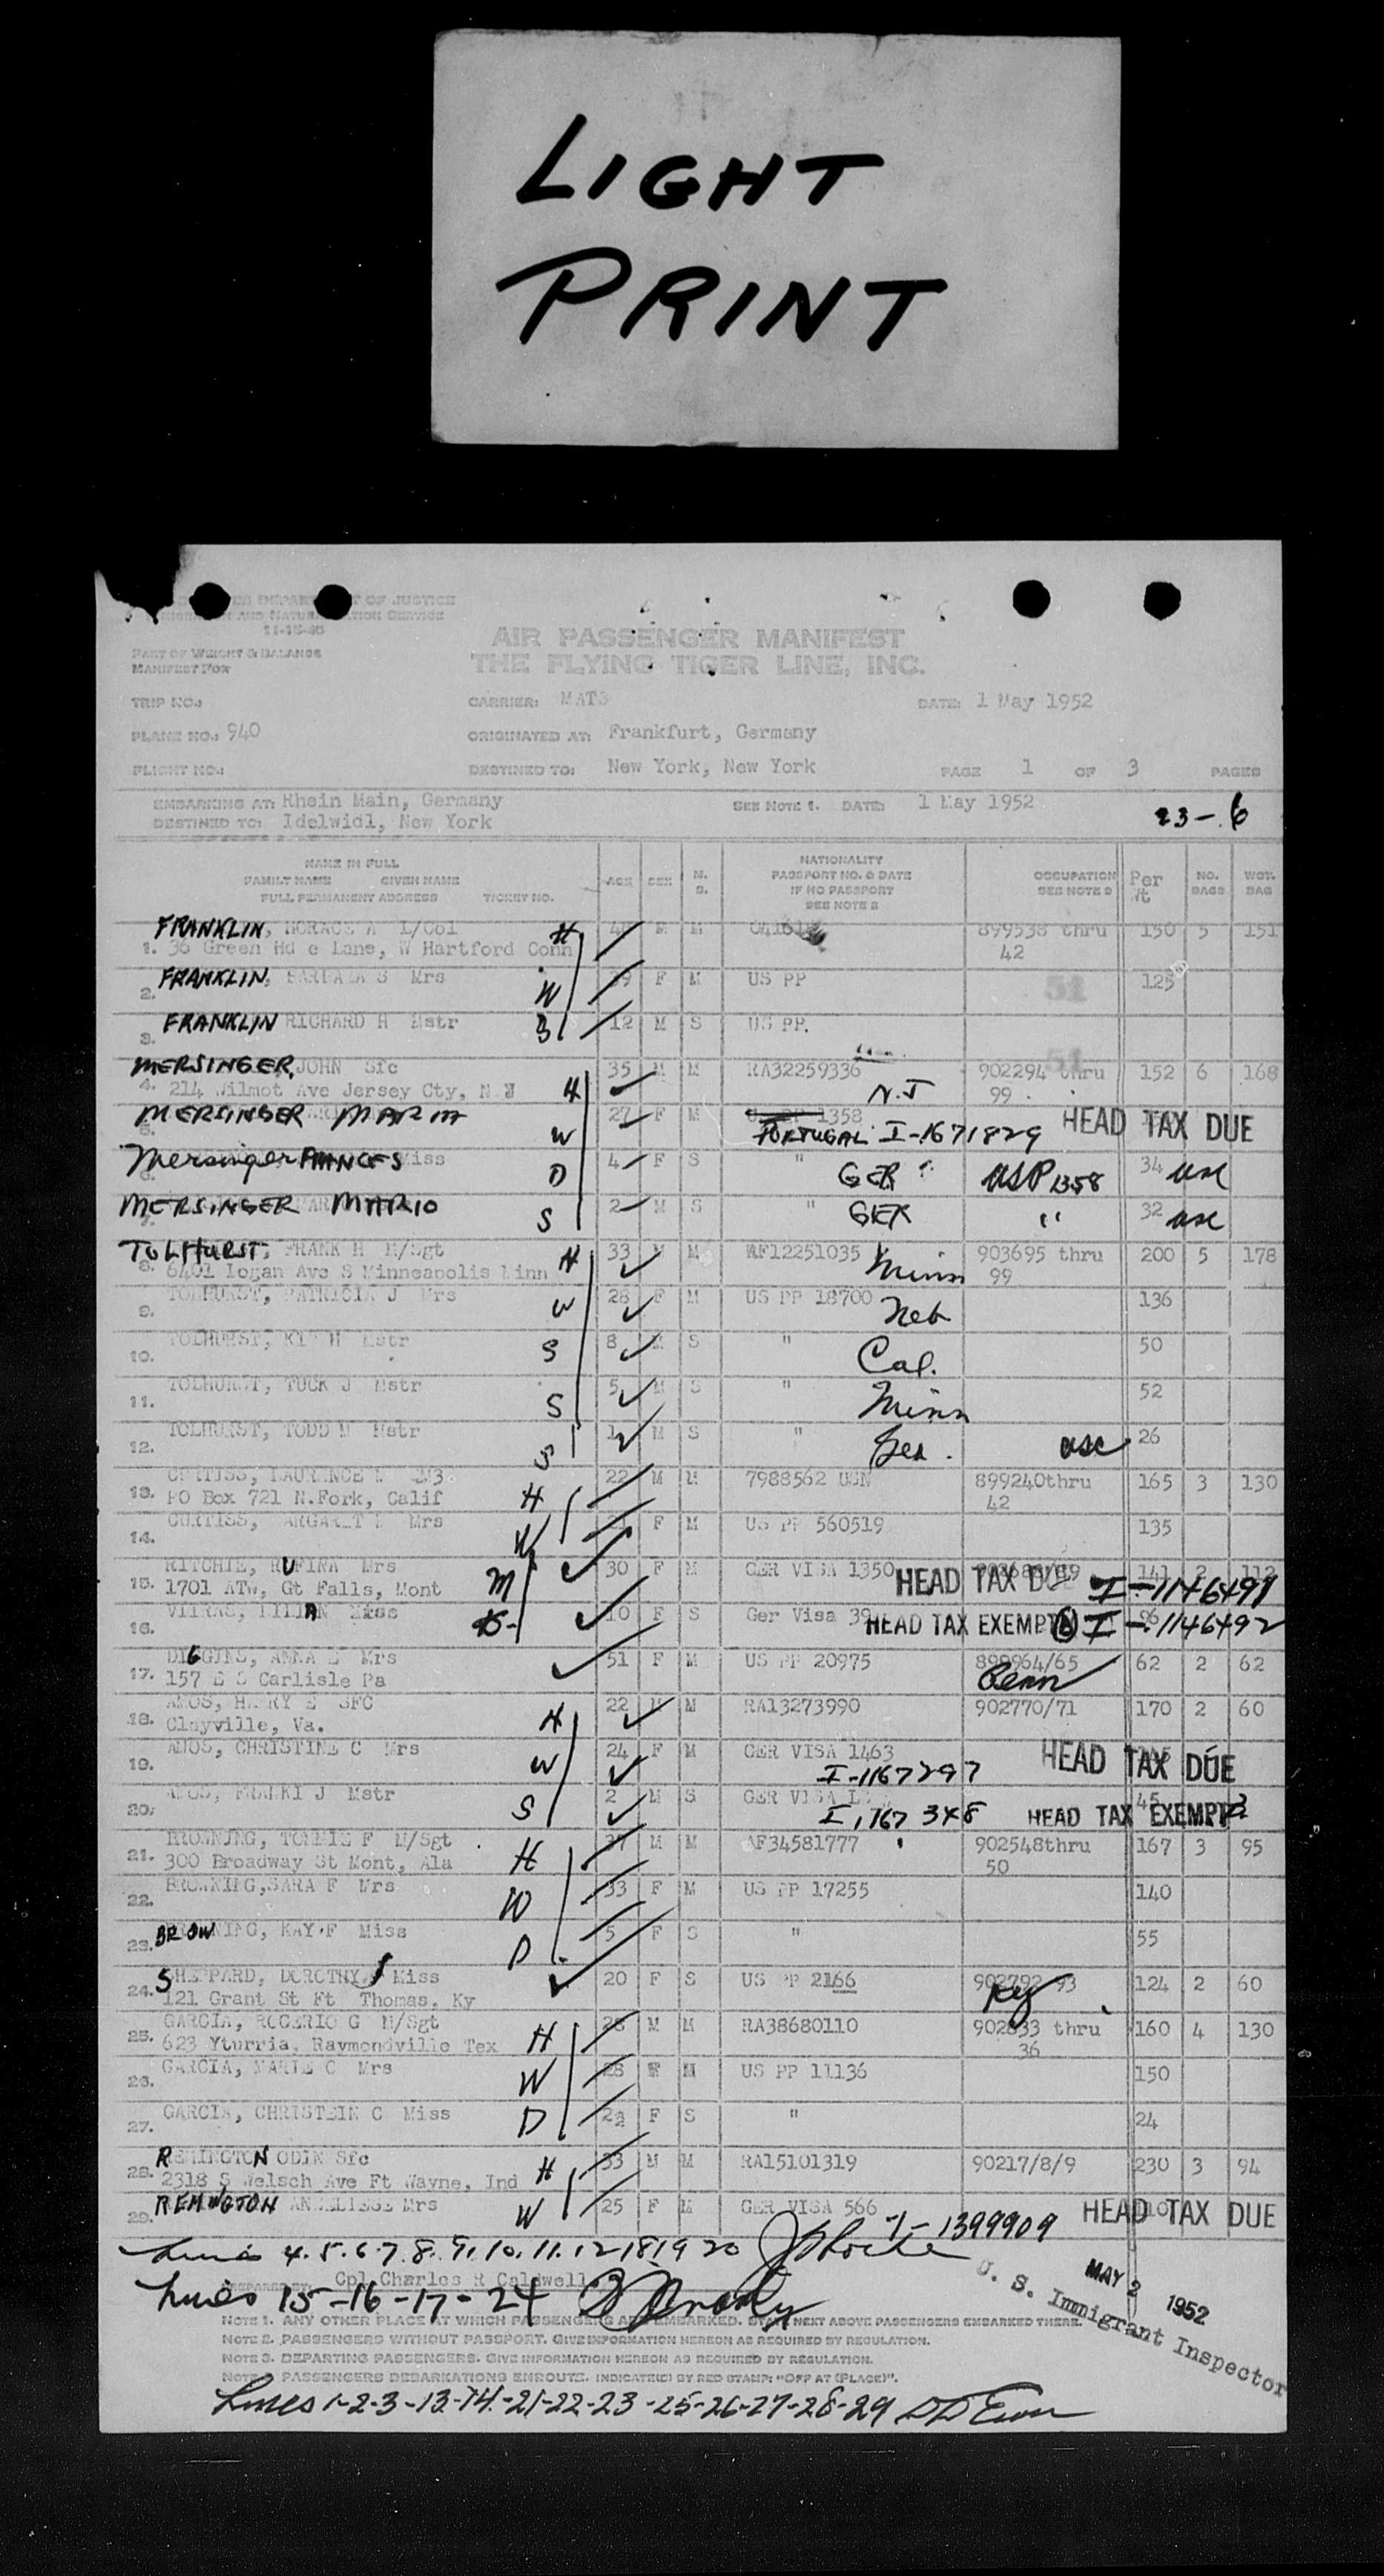 LIGHT
PRINT
DEPARTMENT OF JUSTICE
IMMIGRATION AND NATURALIZATION SERVICE
11-15-46
PART OF WEIGHT & BALANCE
MANIFEST FOR
AIR PASSENGER MANIFEST
THE FLYING TIGER LINE, INC.
TRIP NO.: CARRIER: MATS DATE: 1 May 1952
PLANE NO.: 940 ORIGINATED AT: Frankfurt, Germany
FLIGHT NO.: DESTINED TO: New York, New York PAGE 1 OF 3 PAGES
EMBARKING AT: Rhein Main, Germany SEE NOTE 1. DATE: 1 May 1952
DESTINED TO: Idelwidl, New York 23-6
NAME IN FULL
FAMILY NAME GIVEN NAME
FULL PERMANENT ADDRESS TICKET NO.
AGE SEX M. S.
NATIONALITY
PASSPORT NO. & DATE
IF NO PASSPORT
SEE NOTE 2
OCCUPATION
SEE NOTE 2
Per Wt
NO. BAGS
WGT. BAG
FRANKLIN, HORACE A L/Col H M M 899538 thru 150 5 151
1. 36 Green Hd e Lane, W Hartford Conn 42
2. FRANKLIN, BARBARA S Mrs W 39 F M US PP 51 125
3. FRANKLIN RICHARD H Mstr S 12 M S US PP. 51
MERSINGER, JOHN Sfc 35 M M RA32259336 902294 thru 152 6 168
4. 214 Wilmot Ave Jersey Cty, N J H N.J 99
5. MERSINGER MARIA W 27 F M 1358 HEAD TAX DUE
PORTUGAL I-1671829
6. Mersinger FRANCES Miss D 4 F S " GER USP 1358 34 usc
7. MERSINGER MARIO S 2 M S " GER " 32 usc
TOLHURST, FRANK H M/Sgt H 33 M M AF12251035 903695 thru 200 5 178
8. 6401 Logan Ave S Minneapolis Minn Minn 99
9. TOLHURST, PATRICIA J Mrs W 28 F M US PP 18700 Neb 136
10. TOLHURST, KIT H Mstr S 8 M S " Cal. 50
11. TOLHURST, TUCK J Mstr S 5 M S " Minn 52
12. TOLHURST, TODD M Mstr S 1 M S " Ger. usc 26
CURTISS, LAURENCE 22 M M 7988562 USN 899240thru 165 3 130
13. PO Box 721 N.Fork, Calif H 42
14. CURTISS, MARGARET Mrs W F M US PP 560519 135
RITCHIE, RUFINA Mrs 30 F M GER VISA 1350 141 2 112
15. 1701 ATw, Gt Falls, Mont M HEAD TAX DUE I-1146491
16. LILIAN Miss 10 F S Ger Visa 39 HEAD TAX EXEMPT I-1146492 96
DIGGINS, ANNA Mrs 51 F M US PP 20975 899964/65 62 2 62
17. 157 Carlisle Pa Penn
AMOS, HARRY E SFC 22 M M RA13273990 902770/71 170 2 60
18. Clayville, Va. H
19. AMOS, CHRISTINE C Mrs W 24 F M GER VISA 1463 HEAD TAX DUE
I-1167297
20. AMOS, FRANKI J Mstr S 2 M S GER VISA 45
I,167 348 HEAD TAX EXEMPT
BROWNING, TOMMIE F M/Sgt 37 M M AF34581777 902548thru 167 3 95
21. 300 Broadway St Mont, Ala H 50
22. BROWNING,SARA F Mrs W 33 F M US PP 17255 140
23. BROWNING, KAY F Miss D 5 F S " 55
SHEPPARD, DOROTHY J Miss 20 F S US PP 2166 902792 93 124 2 60
24. 121 Grant St Ft Thomas, Ky Ky
GARCIA, ROGERIO G M/Sgt 28 M M RA38680110 902833 thru 160 4 130
25. 623 Yturria, Raymondville Tex H 36
26. GARCIA, MARIE C Mrs W 28 F M US PP 11136 150
27. GARCIA, CHRISTEIN C Miss D F S " 24
REMINGTON ODIN Sfc 33 M M RA15101319 90217/8/9 230 3 94
28. 2318 S Welsch Ave Ft Wayne, Ind H
29. REMINGTON ANNELIESE Mrs W 25 F M GER VISA 566 HEAD TAX DUE
I-1399909
Lines 4.5.6.7.8.9.10.11.12 18 19 20
PREPARED BY: Cpl Charles R Caldwell
Lines 15-16-17-24
MAY 2 1952
U. S. Immigrant Inspector
NOTE 1. ANY OTHER PLACE AT WHICH PASSENGERS ARE EMBARKED. START NEXT ABOVE PASSENGERS EMBARKED THERE.
NOTE 2. PASSENGERS WITHOUT PASSPORT. GIVE INFORMATION HEREON AS REQUIRED BY REGULATION.
NOTE 3. DEPARTING PASSENGERS. GIVE INFORMATION HEREON AS REQUIRED BY REGULATION.
NOTE PASSENGERS DEBARKATIONS ENROUTE. INDICATE(D) BY RED STAMP: "OFF AT (PLACE)".
Lines 1-2-3-13-14-21-22-23-25-26-27-28-29